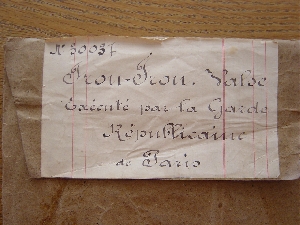 N° 30037
Frou-Frou. Valse
Exécuté par la Garde
Républicaine
de Paris